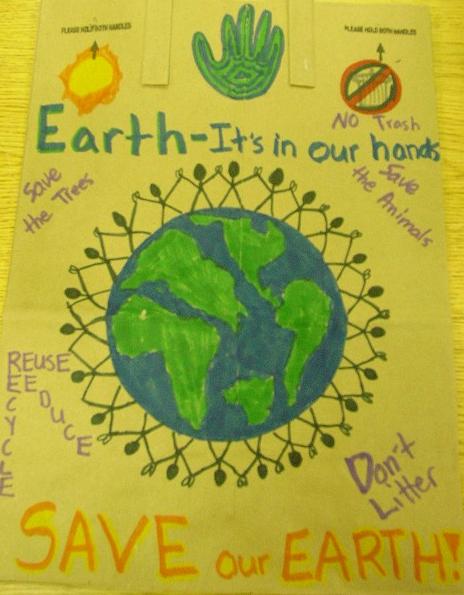 PLEASE HOLD BOTH HANDLES
PLEASE HOLD BOTH HANDLES
NO Trash
Earth-It's in our hands
Save
the Trees
Save
the Animals
REUSE
REDUCE
RECYCLE
Don't
Litter
SAVE our EARTH!